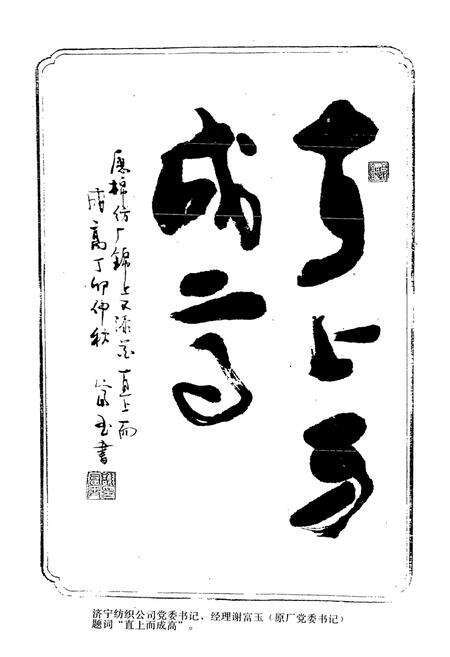 直上而
成高
愿棉纺厂锦上又添花直上而
成高丁卯仲秋
富玉書
济宁纺织公司党委书记、经理谢富玉(原厂党委书记)
题词“直上而成高”。